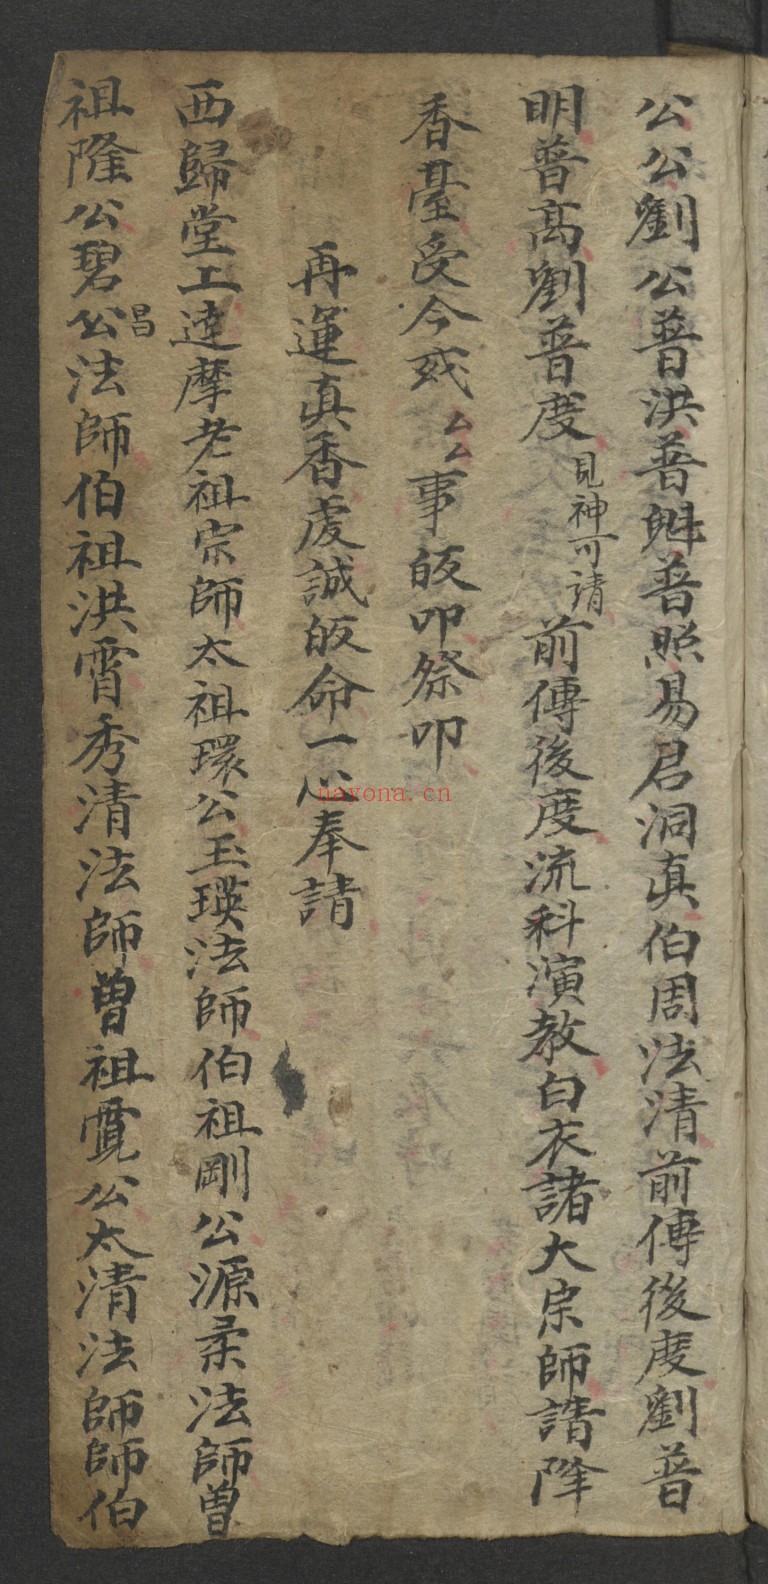 公公劉公普洪普魁普照易君洞真伯周法清前傳後度劉普
明普髙劉普度見神可請前傳後度流科演教白衣諸大宗師請降
香臺受今或厶厶事皈叩祭叩
再運真香虔誠皈命一心奉請
西歸堂上達摩老祖宗師太祖環公玉瑛法師伯祖剛公源柔法師曾
祖隆公碧公昌法師伯祖洪霄秀清法師曾祖霓公太清法師師伯
nayona.cn